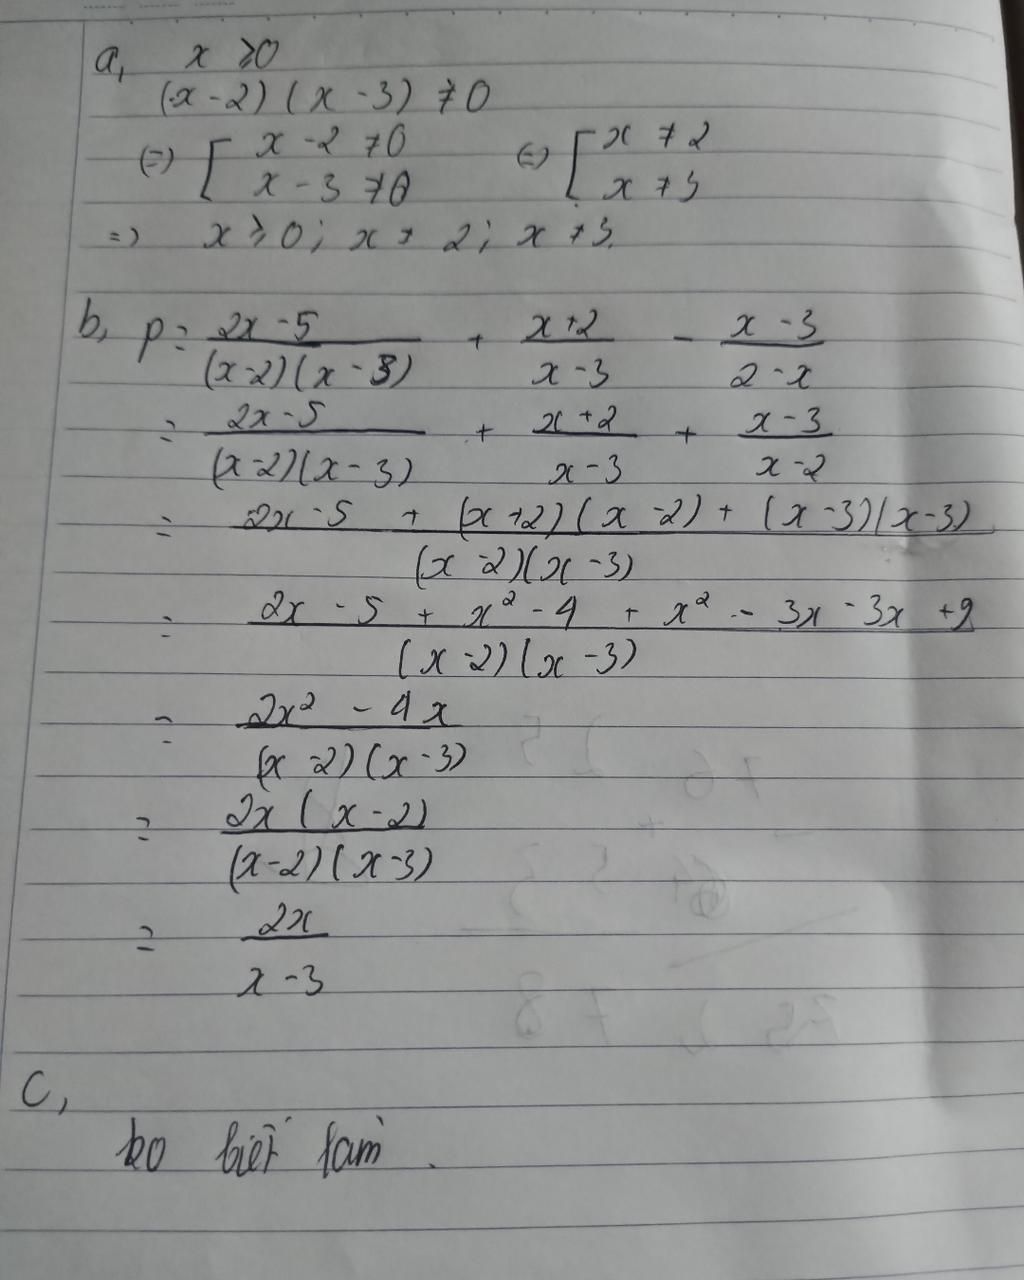 a, x ⩾ 0
(x - 2) (x - 3) ≠ 0
(=) [ x - 2 ≠ 0 (=) [ x ≠ 2
x - 3 ≠ 0 x ≠ 3
=) x ⩾ 0 ; x ≠ 2 ; x ≠ 3.
b, P = \frac{2x - 5}{(x - 2)(x - 3)} + \frac{x + 2}{x - 3} - \frac{x - 3}{2 - x}
= \frac{2x - 5}{(x - 2)(x - 3)} + \frac{x + 2}{x - 3} + \frac{x - 3}{x - 2}
= \frac{2x - 5 + (x + 2)(x - 2) + (x - 3)(x - 3)}{(x - 2)(x - 3)}
= \frac{2x - 5 + x² - 4 + x² - 3x - 3x + 9}{(x - 2)(x - 3)}
= \frac{2x² - 4x}{(x - 2)(x - 3)}
= \frac{2x (x - 2)}{(x - 2)(x - 3)}
= \frac{2x}{x - 3}
C,
ko biết làm .